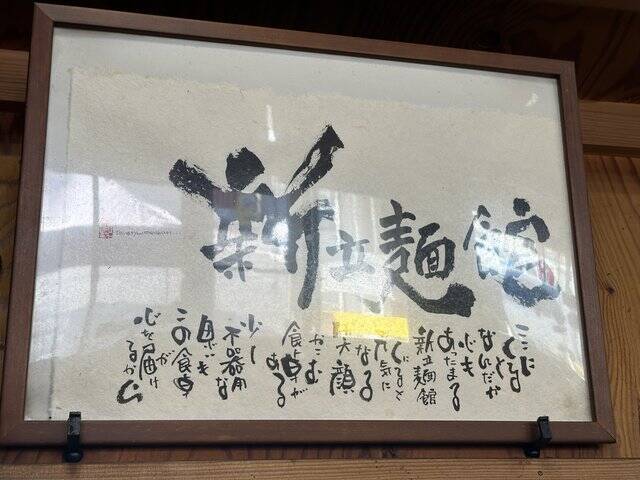 新立麺館
ここに
くると
なんだか
心も
あったまる
新立麺館
にくると
元気に
なる
顔
かこむ
食卓が
ある
少し
不器用な
この食卓
が
心を届け
るから